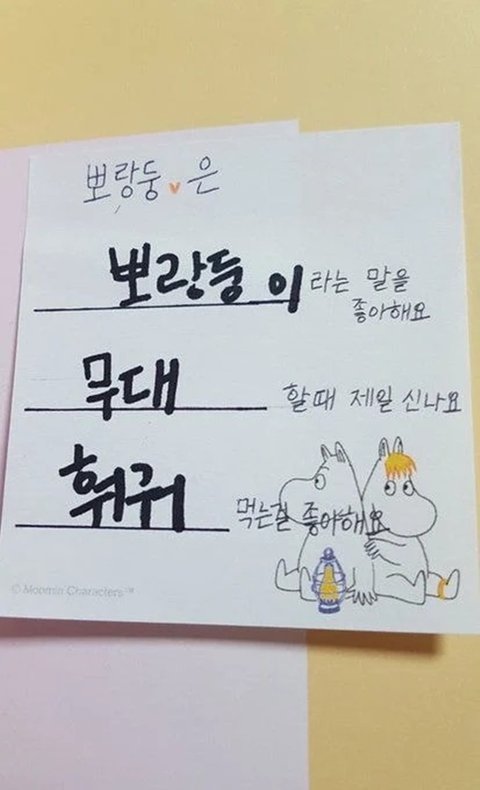 뽀랑둥 은
뽀랑둥이 라는 말을
좋아해요
무대 할때 제일 신나요
훠궈 먹는걸 좋아해요
© Moomin Characters™